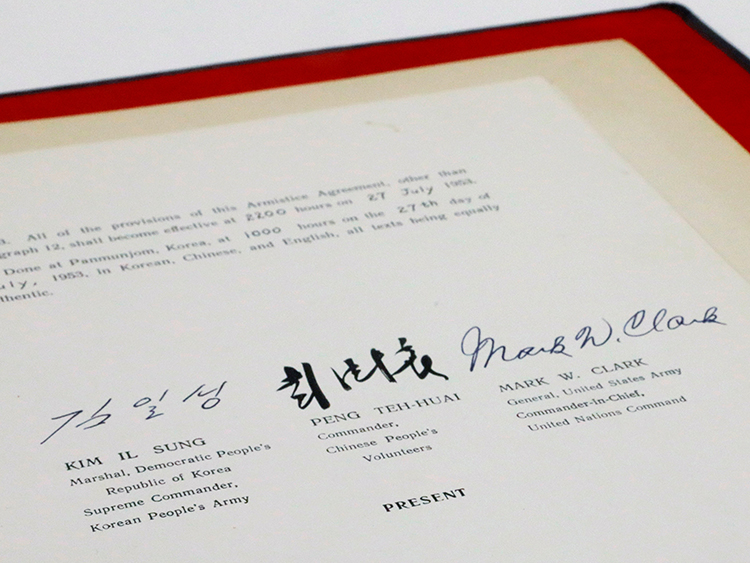 3. All of the provisions of this Armistice Agreement, other than
graph 12, shall become effective at 2200 hours on 27 July 1953.
Done at Panmunjom, Korea, at 1000 hours on the 27th day of
uly, 1953, in Korean, Chinese, and English, all texts being equally
thentic.
김일성
KIM IL SUNG
Marshal, Democratic People's
Republic of Korea
Supreme Commander,
Korean People's Army
PENG TEH-HUAI
Commander,
Chinese People's
Volunteers
Mark W. Clark
MARK W. CLARK
General, United States Army
Commander-in-Chief,
United Nations Command
PRESENT